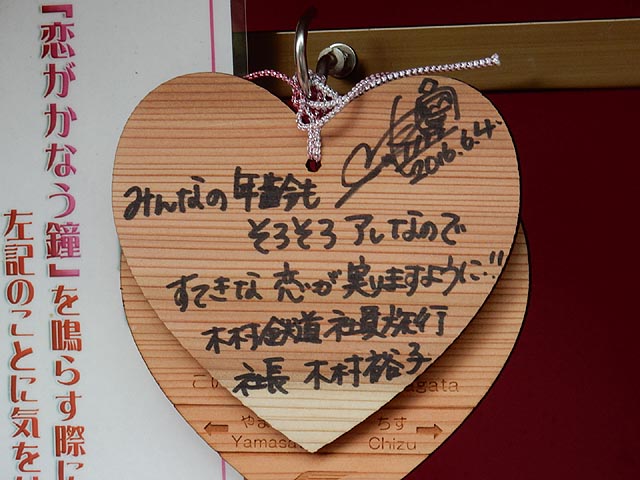 『恋がかなう鐘』を鳴らす際に
左記のことに気を
2016.6.4
みんなの年齢も
そろそろ アレなので
すてきな 恋が 実りますように!!
木村鉄道 社員旅行
社長 木村裕子
こい
gata
やま
ちず
Yamasa
Chizu